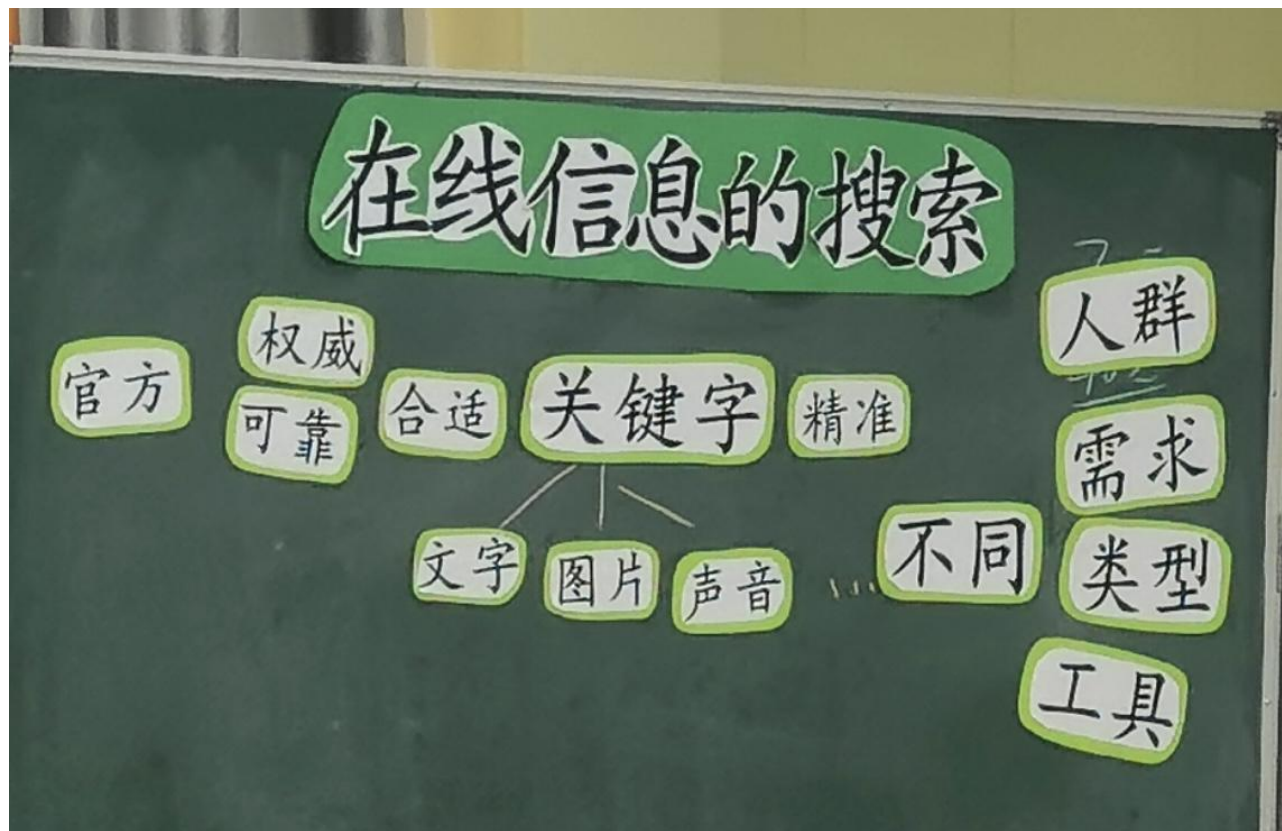 在线信息的搜索
官方
权威
可靠
合适
关键字
精准
文字
图片
声音
......
不同
人群
需求
类型
工具